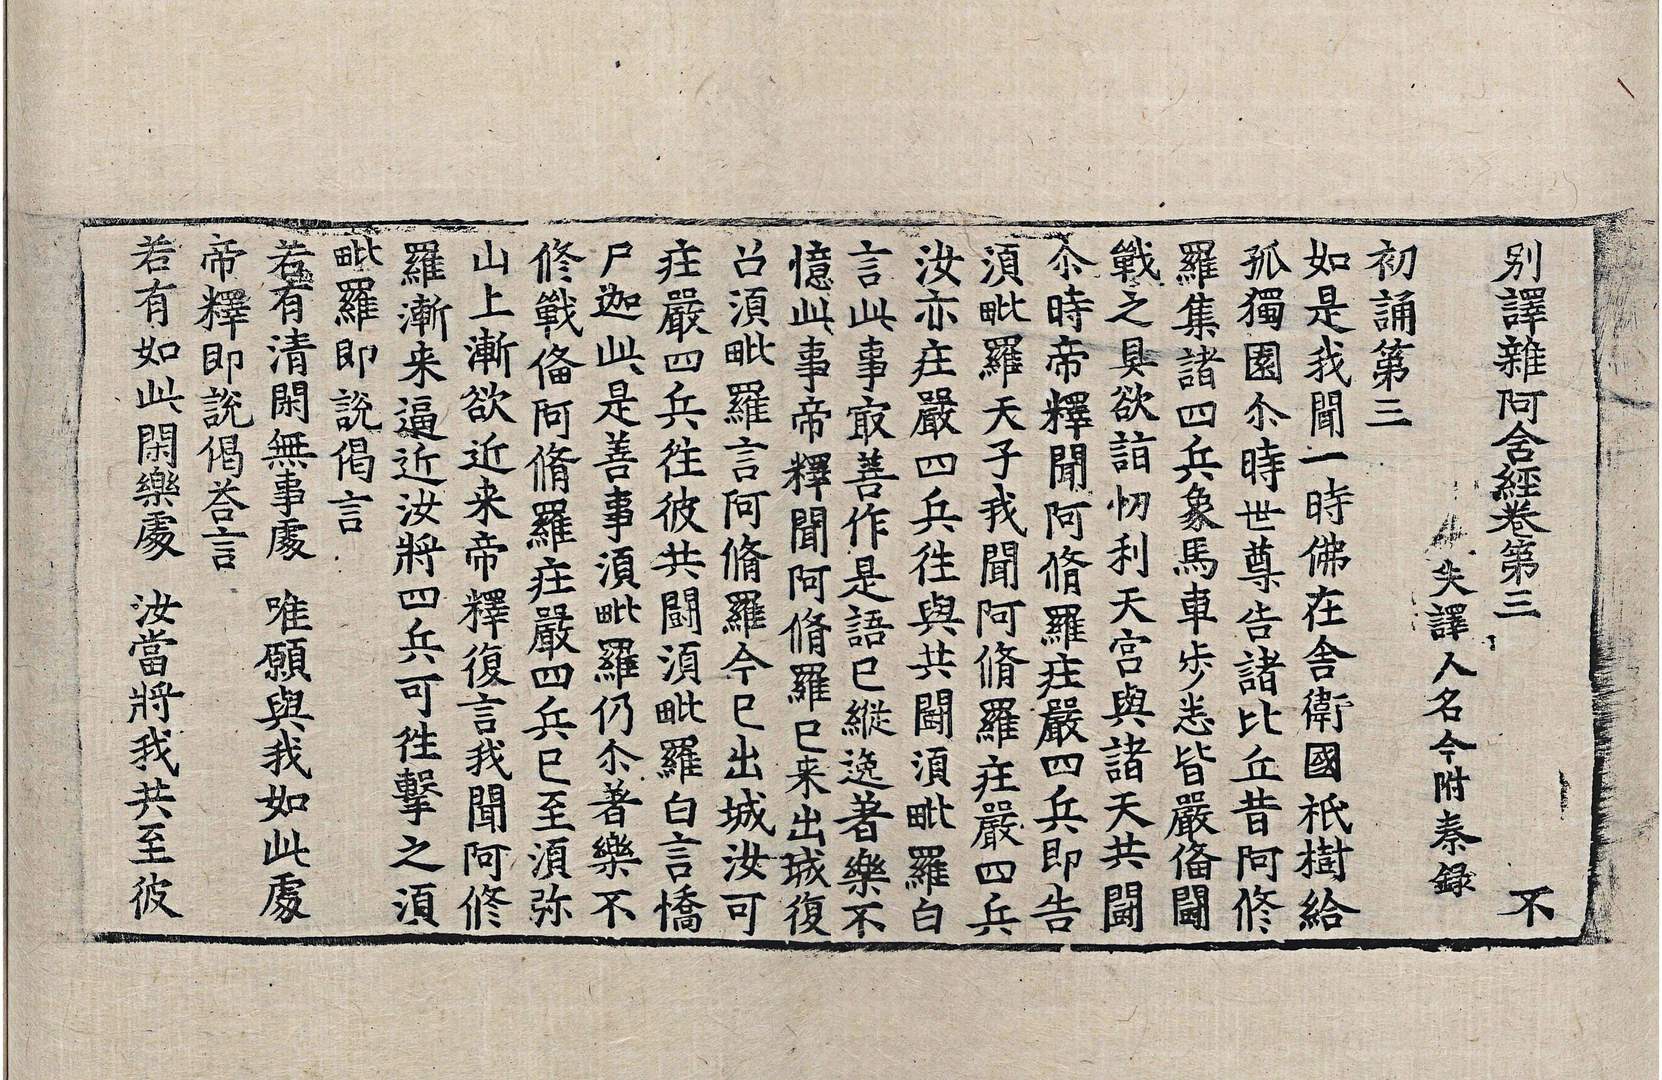 别譯雜阿含經卷第三 不
失譯人名今附秦録
初誦第三
如是我聞一時佛在舍衛國祇樹給
孤獨園尒時世尊告諸比丘昔阿修
羅集諸四兵象馬車步悉皆嚴俻鬪
戰之具欲詣忉利天宮與諸天共鬪
尒時帝釋聞阿脩羅庄嚴四兵即告
湏毗羅天子我聞阿脩羅庄嚴四兵
汝亦庄嚴四兵徃與共鬪湏毗羅白
言此事㝡善作是語已縱逸著樂不
憶此事帝釋聞阿脩羅已来出城復
召湏毗羅言阿脩羅今已出城汝可
庄嚴四兵徃彼共鬪湏毗羅白言憍
尸迦此是善事湏毗羅仍尒著樂不
修戰俻阿脩羅庄嚴四兵已至湏弥
山上漸欲近来帝釋復言我聞阿修
羅漸来逼近汝將四兵可徃擊之湏
毗羅即說偈言
若有清閑無事處 唯願與我如此處
帝釋即說偈荅言
若有如此閑樂處 汝當將我共至彼